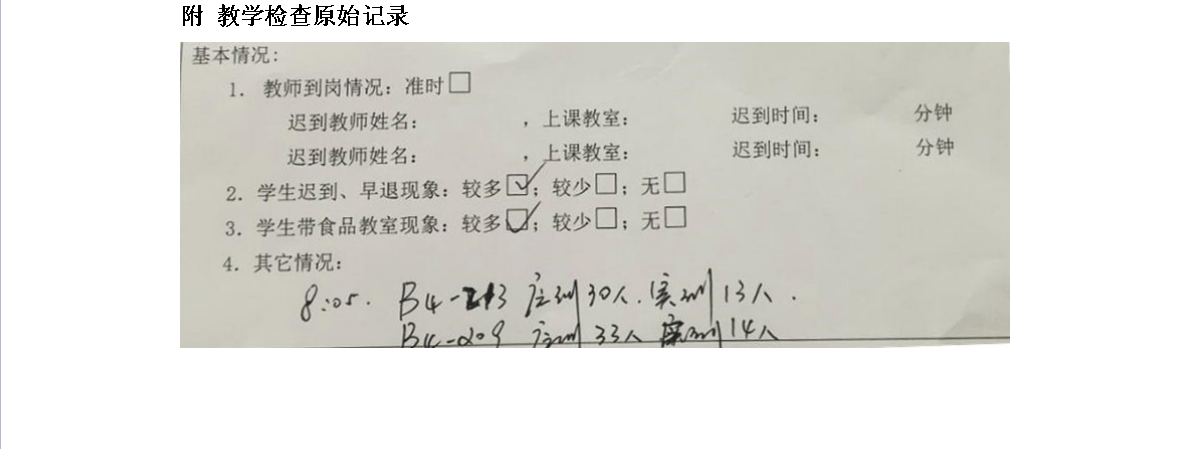 附 教学检查原始记录
基本情况:
1. 教师到岗情况: 准时□
迟到教师姓名: , 上课教室: 迟到时间: 分钟
迟到教师姓名: , 上课教室: 迟到时间: 分钟
2. 学生迟到、早退现象: 较多☑; 较少□; 无□
3. 学生带食品教室现象: 较多☑; 较少□; 无□
4. 其它情况:
8:05. B4-213 应到30人. 实到13人.
B4-209 应到33人 实到14人